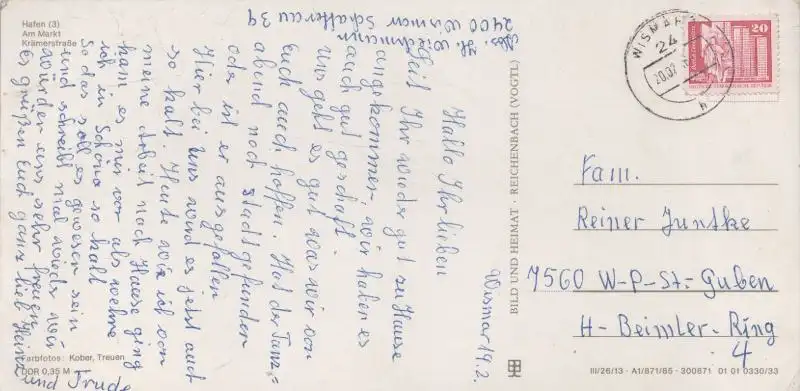 Hafen (3)
Am Markt
Krämerstraße
Abs. H. Wiechmann
2400 Wismar Schatterau 34
Wismar 19.2.
Hallo Ihr lieben
Seit Ihr wieder gut zu Hause
angekommen, wir haben es
auch gut geschaft.
Uns geht es gut was wir von
Euch auch hoffen. Hat der Tanz=
abend noch stadtgefunden
oder ist er ausgefallen
Hier bei uns wird es jetzt auch
so kalt. Heute wie ich von
meine Arbeit nach Hause ging
kam es mir vor als wehre
ich in Schöna so kalt
so das soll es gewesen sein
und schreibt mal wieder wir
würden uns sehr freuen
es grüßen Euch ganz lieb Heinz
und Trude
Farbfotos: Kober, Treuen
DDR 0,35 M
BILD UND HEIMAT · REICHENBACH (VOGTL)
WISMAR
24
20.02
h
20
Fam.
Reiner Juntke
7560 W-P-St.- Guben
H- Beimler-Ring
4
III/26/13 · A1/871/85 · 300671 01 01 0330/33